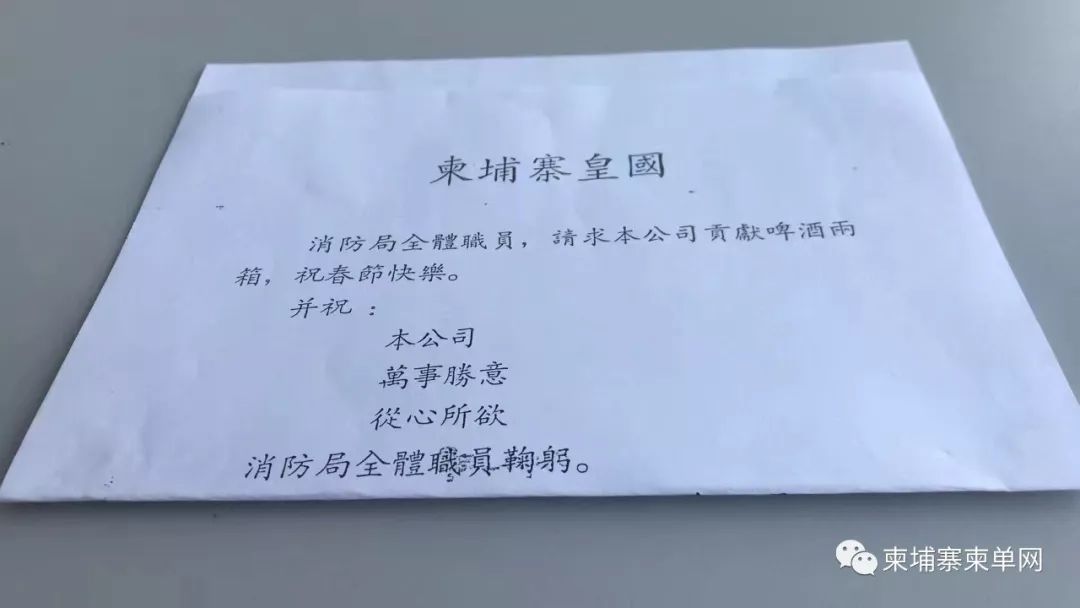 柬埔寨皇國
消防局全體職員，請求本公司貢獻啤酒兩
箱，祝春節快樂。
并祝：
本公司
萬事勝意
從心所欲
消防局全體職員鞠躬。
柬埔寨柬单网